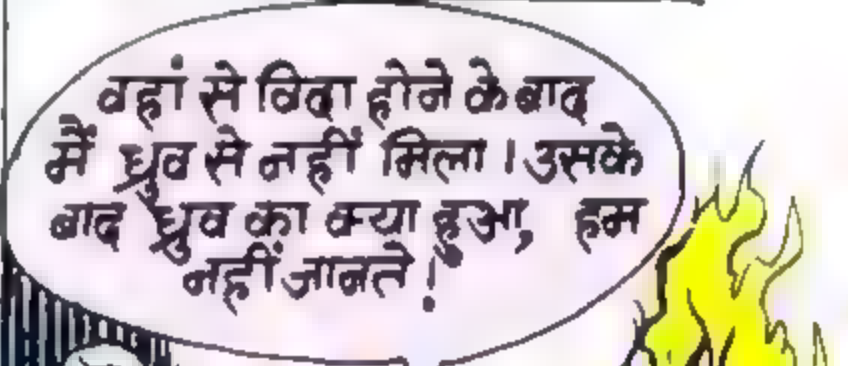 वहां से विदा होने के बाद
मैं ध्रुव से नहीं मिला। उसके
बाद ध्रुव का क्या हुआ, हम
नहीं जानते!